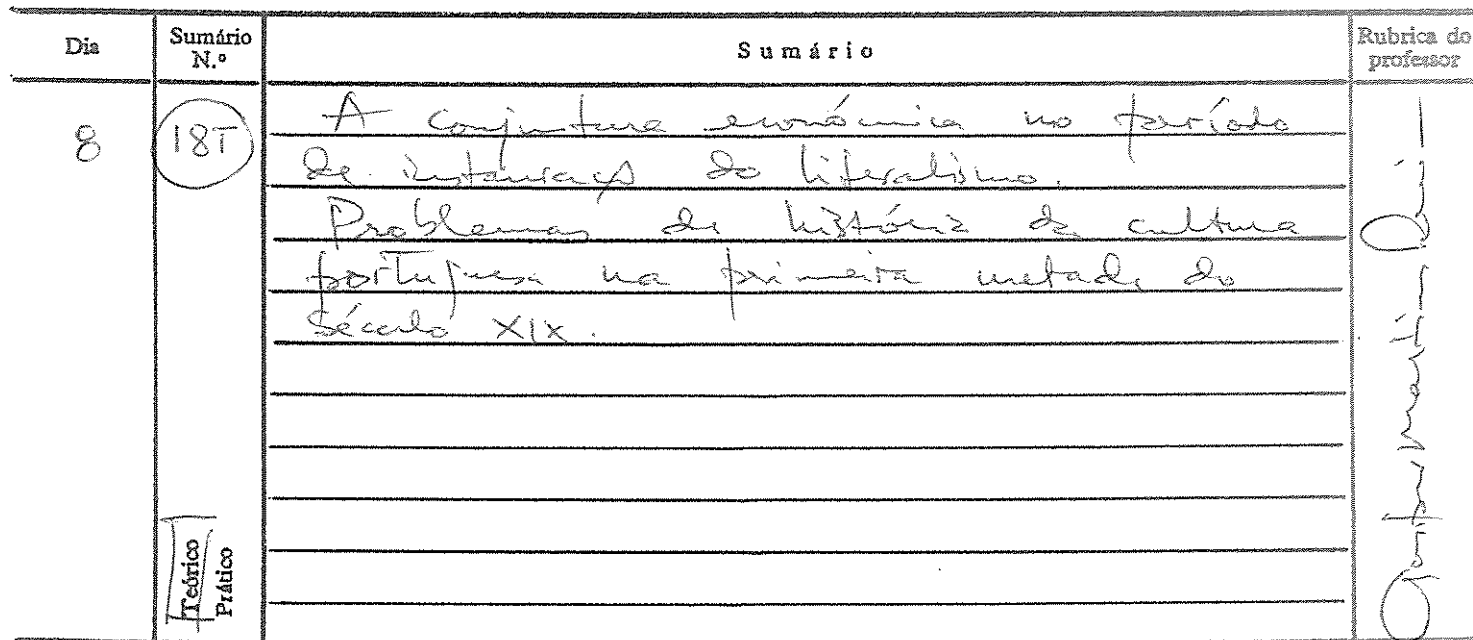 Dia
Sumário N.º
Sumário
Rubrica do professor
8
18T
A conjuntura económica no período
de instauração do liberalismo.
Problemas de história da cultura
portuguesa na primeira metade do
Século XIX.
Teórico
Prático